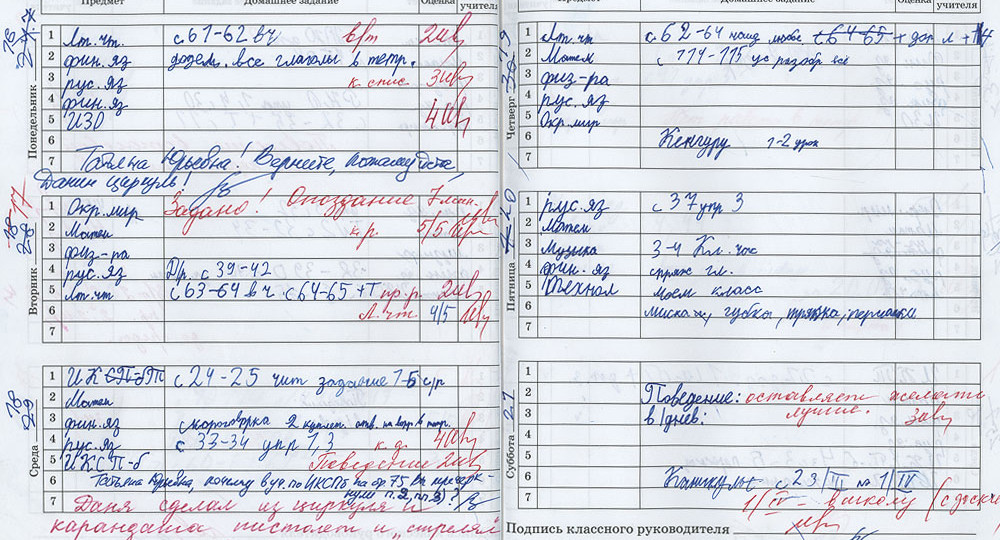 Предмет Домашнее задание Оценка учителя
Понедельник
1 Лит.чт. с 61-62 вч в/т 2
2 фин.яз доделать все глаголы в тетр.
3 рус.яз к спис. 3
4 фин.яз
5 ИЗО 4
6
7 Татьяна Юрьевна! Верните, пожалуйста,
Данин циркуль!
Вторник 17
1 Окр.мир Задано! Опоздание 7 мин.
2 Матем к.р. 5/5
3 физ-ра
4 рус.яз Д/р. с 39-42
5 Лит.чт с 63-64 вч с 64-65 +Т пр.р. 2
6 Л.чт. 4/5
7
Среда
1 с 24-25 чит задание 1-5 с/р
2 Матем
3 фин.яз скороговорка 2 куплет. отв. на вопр. в тетр.
4 рус.яз с 33-34 упр 1,3 к.д. 4
5 ИКСП-б Поведение 2
6 Татьяна Юрьевна, почему в уч. по ИКСПб на стр 75 Вы
7 п. 2, пп 3)?
Даня сделал из циркуля и
карандаша пистолет и „стрелял"
Предмет Домашнее задание Оценка учителя
Четверг 19
1 Лит.чт с 62-64 наиз любое с 64-65 + доп л +
2 Матем с 114-115 устно разобр все
3 физ-ра
4 рус.яз
5 Окр.мир
6 Кенгуру 1-2 урок
7
Пятница 20
1 рус.яз с 37 упр 3
2 Матем
3 Музыка 3-4 Кл.час
4 фин.яз спряж гл.
5 Технол моем класс
6 миска, губка, тряпка, перчатки
7
Суббота 21
1
2 Поведение: оставляет желать
3 в 1 днев: лучшего. 3
4
5
6 Каникулы с 23/III по 1/IV
7 1/IV - в школу
Подпись классного руководителя